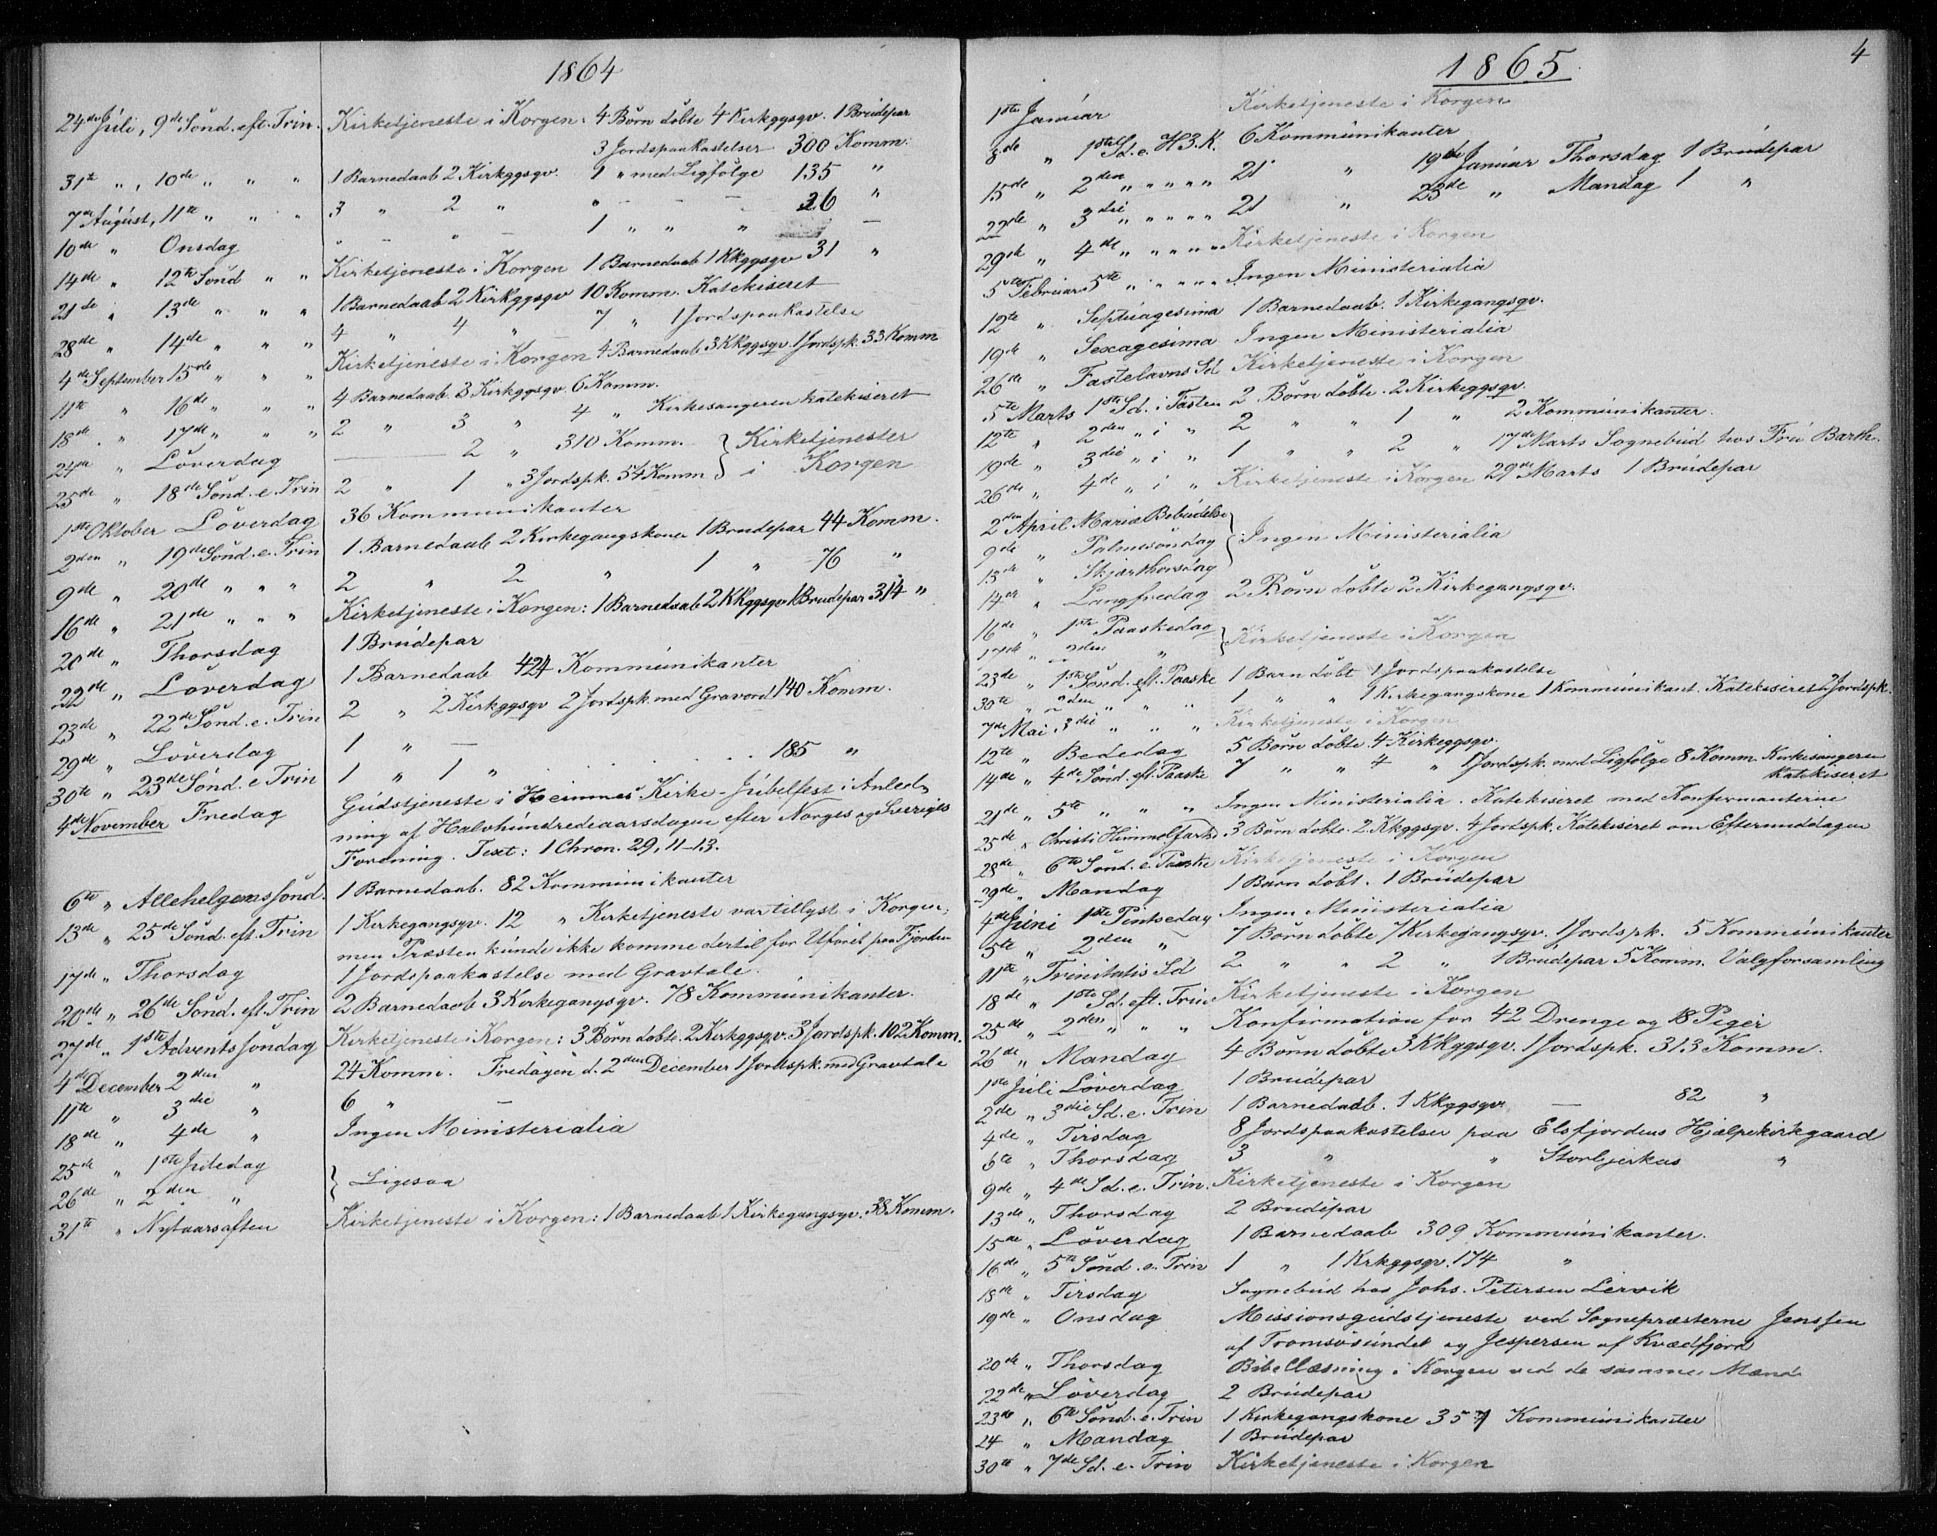 1864
24de Juli, 9de Sönd. eft. Trin. Kirketjeneste i Korgen: 4 Börn döbte 4 Kirkggsqv. 1 Brudepar
3 Jordspaakastelser 300 Komm:
31te " , 10de " " " 1 Barnedaab 2 Kirkggsqv. 1 " med Ligfölge 135 "
7de August, 11te " " " 3 " 2 " " — — — 26 "
10de " Onsdag " — " — 1 " " " —
14de " 12te Sönd " " Kirketjeneste i Korgen 1 Barnedaab 1 Kkggsqv 31 "
21de " 13de " " " 1 Barnedaab 2 Kirkggsqv 10 Komm. Katekiseret
28de " 14de " " " 4 " 4 " 7 " 1 Jordspaakastelse
4de September 15de " " " Kirketjeneste i Korgen 4 Barnedaab 3 Kkggsqv. 1 Jordspk. 33 Komm
11te " 16de " " " 4 Barnedaab 3 Kirkggsqv. 6 Komm.
18de " 17de " " " 2 " 3 " 4 " Kirkesangeren katekiseret
24de " Löverdag — 2 " 310 Komm. } Kirketjenester
25de " 18de Sönd. e. Trin 2 " 1 " 3 Jordspk. 54 Komm } i Korgen
1ste Oktober Löverdag 36 Kommunikanter
2den " 19de Sönd. e. Trin 1 Barnedaab 2 Kirkegangskoner 1 Brudepar 44 Komm.
9de " 20de " " " 2 " 2 " 1 " 76 "
16de " 21de " " " Kirketjeneste i Korgen: 1 Barnedaab 2 Kkggsqv 1 Brudepar 314 "
20de " Thorsdag 1 Brudepar
22de " Löverdag 1 Barnedaab 424 Kommunikanter
23de " 22de Sönd. e. Trin 2 " 2 Kirkggsqv 2 Jordspk. med Gravord 140 Komm.
29de " Löverdag 1 " — 185 "
30te " 23de Sönd. e. Trin 1 " 1 "
4de November Fredag Gudstjeneste i Hemnes Kirke - Jubelfest i Anled-
ning af Halvhundredeaarsdagen efter Norges og Sveriges
Forening. Text: 1 Chron. 29, 11-13.
6te " Allehelgenssönd. 1 Barnedaab. 82 Kommunikanter
13de " 25de Sönd. eft. Trin 1 Kirkegangsqv. 12 " Kirketjeneste var tillyst i Korgen;
men Præsten kunde ikke komme dertil for Uföret paa Fjorden
17de " Thorsdag 1 Jordspaakastelse med Gravtale.
20de " 26de Sönd. eft. Trin 2 Barnedaab 3 Kirkegangsqv. 78 Kommunikanter.
27de " 1ste Adventssöndag Kirketjeneste i Korgen: 3 Börn döbte. 2 Kirkggsqv. 3 Jordspk. 102 Komm.
4de December 2den " 24 Komm. Fredagen d. 2den December 1 Jordspk. med Gravtale
11te " 3die " 6 "
18de " 4de " Ingen Ministerialia
25de " 1ste Juledag } Ligesaa
26de " 2den "
31te " Nytaarsaften Kirketjeneste i Korgen: 1 Barnedaab 1 Kirkegangsqv. 38 Komm.
4
1865
1ste Januar Kirketjeneste i Korgen
8de " 1ste Sd. e. H.3.K. 6 Kommunikanter
15de " 2den " " " " 21 " 19de Januar Thorsdag 1 Brudepar
22de " 3die " " " " 21 " 23de " Mandag 1 "
29de " 4de " " " " Kirketjeneste i Korgen
5te Februar 5te " " " " Ingen Ministerialia
12te " Septuagesima 1 Barnedaab. 1 Kirkegangsqv.
19de " Sexagesima Ingen Ministerialia
26de " Fastelavns Sd Kirketjeneste i Korgen
5te Marts 1ste Sd. i Fasten 2 Börn döbte. 2 Kirkeggsqv.
12te " 2den " i " 2 " " 1 " 2 Kommunikanter.
19de " 3die " i " 1 " " 2 " 17de Marts Sognebud hos Fru Barth.
26de " 4de " i " Kirketjeneste i Korgen 29de Marts 1 Brudepar
2den April Mariæ Bebudelse }
9de " Palmesöndag } Ingen Ministerialia
13de " Skjærthorsdag }
14de " Langfredag 2 Börn döbte 2 Kirkegangsqv.
16de " 1ste Paaskedag } Kirketjeneste i Korgen
17de " 2den "
23de " 1ste Sönd. eft. Paaske 1 Barn döbt 1 Jordspaakastelse
30te " 2den " " " 1 " " 1 Kirkegangskone 1 Kommunikant. Katekiseret 2 Jordspk.
7de Mai 3die " " " Kirketjeneste i Korgen
12te " Bededag 5 Börn döbte. 4 Kirkeggsqv.
14de " 4de Sönd. eft. Paaske 7 " " 4 " 1 Jordspk. med Ligfölge 8 Komm. Kirkesangeren
Katekiseret
21de " 5te " " " Ingen Ministerialia. Katekiseret med Konfirmanterne
25de " Christi Himmelfartsd 3 Börn döbte. 2 Kkggsqv. 4 Jordspk. Katekiseret om Eftermiddagen
28de " 6te Sönd. e. Paaske Kirketjeneste i Korgen
29de " Mandag 1 Barn döbt. 1 Brudepar
4de Juni 1ste Pintsedag Ingen Ministerialia
5te " 2den " 7 Börn döbte 7 Kirkegangsqv. 1 Jordspk. 5 Kommunikanter
11te " Trinitatis Sd 2 " " 2 " 1 Brudepar 5 Komm. Valgforsamling
18de " 1ste Sd. eft. Trin Kirketjeneste i Korgen
25de " 2den " " " Konfirmation for 42 Drenge og 18 Piger
26de " Mandag 4 Börn döbte 3 Kkggsqv. 1 Jordspk. 313 Komm.
1ste Juli Löverdag 1 Brudepar
2de " 3die Sd. e. Trin 1 Barnedaab. 1 Kkggsqv. — 82 "
4de " Tirsdag 8 Jordspaakastelser paa Elsfjordens Hjælpekirkegaard
6te " Thorsdag 3 " " Storbjerkas "
9de " 4de Sd. e. Trin. Kirketjeneste i Korgen
13de " Thorsdag 2 Brudepar
15de " Löverdag 1 Barnedaab 309 Kommunikanter.
16de " 5te Sönd. e. Trin 1 " 1 Krkggsqv. 174 "
18de " Tirsdag Sognebud hos Johs. Petersen Lervik
19de " Onsdag Missionsgudstjeneste ved Sognepræsterne Jenssen
af Tromsösundet og Jespersen af Kvædfjord
20de " Thorsdag Bibellæsning i Korgen ved de samme Mænd
22de " Löverdag 2 Brudepar
23de " 6te Sönd. e. Trin 1 Kirkegangskone 357 Kommunikanter
24 " Mandag 1 Brudepar
30te " 7de Sd. e. Trin Kirketjeneste i Korgen